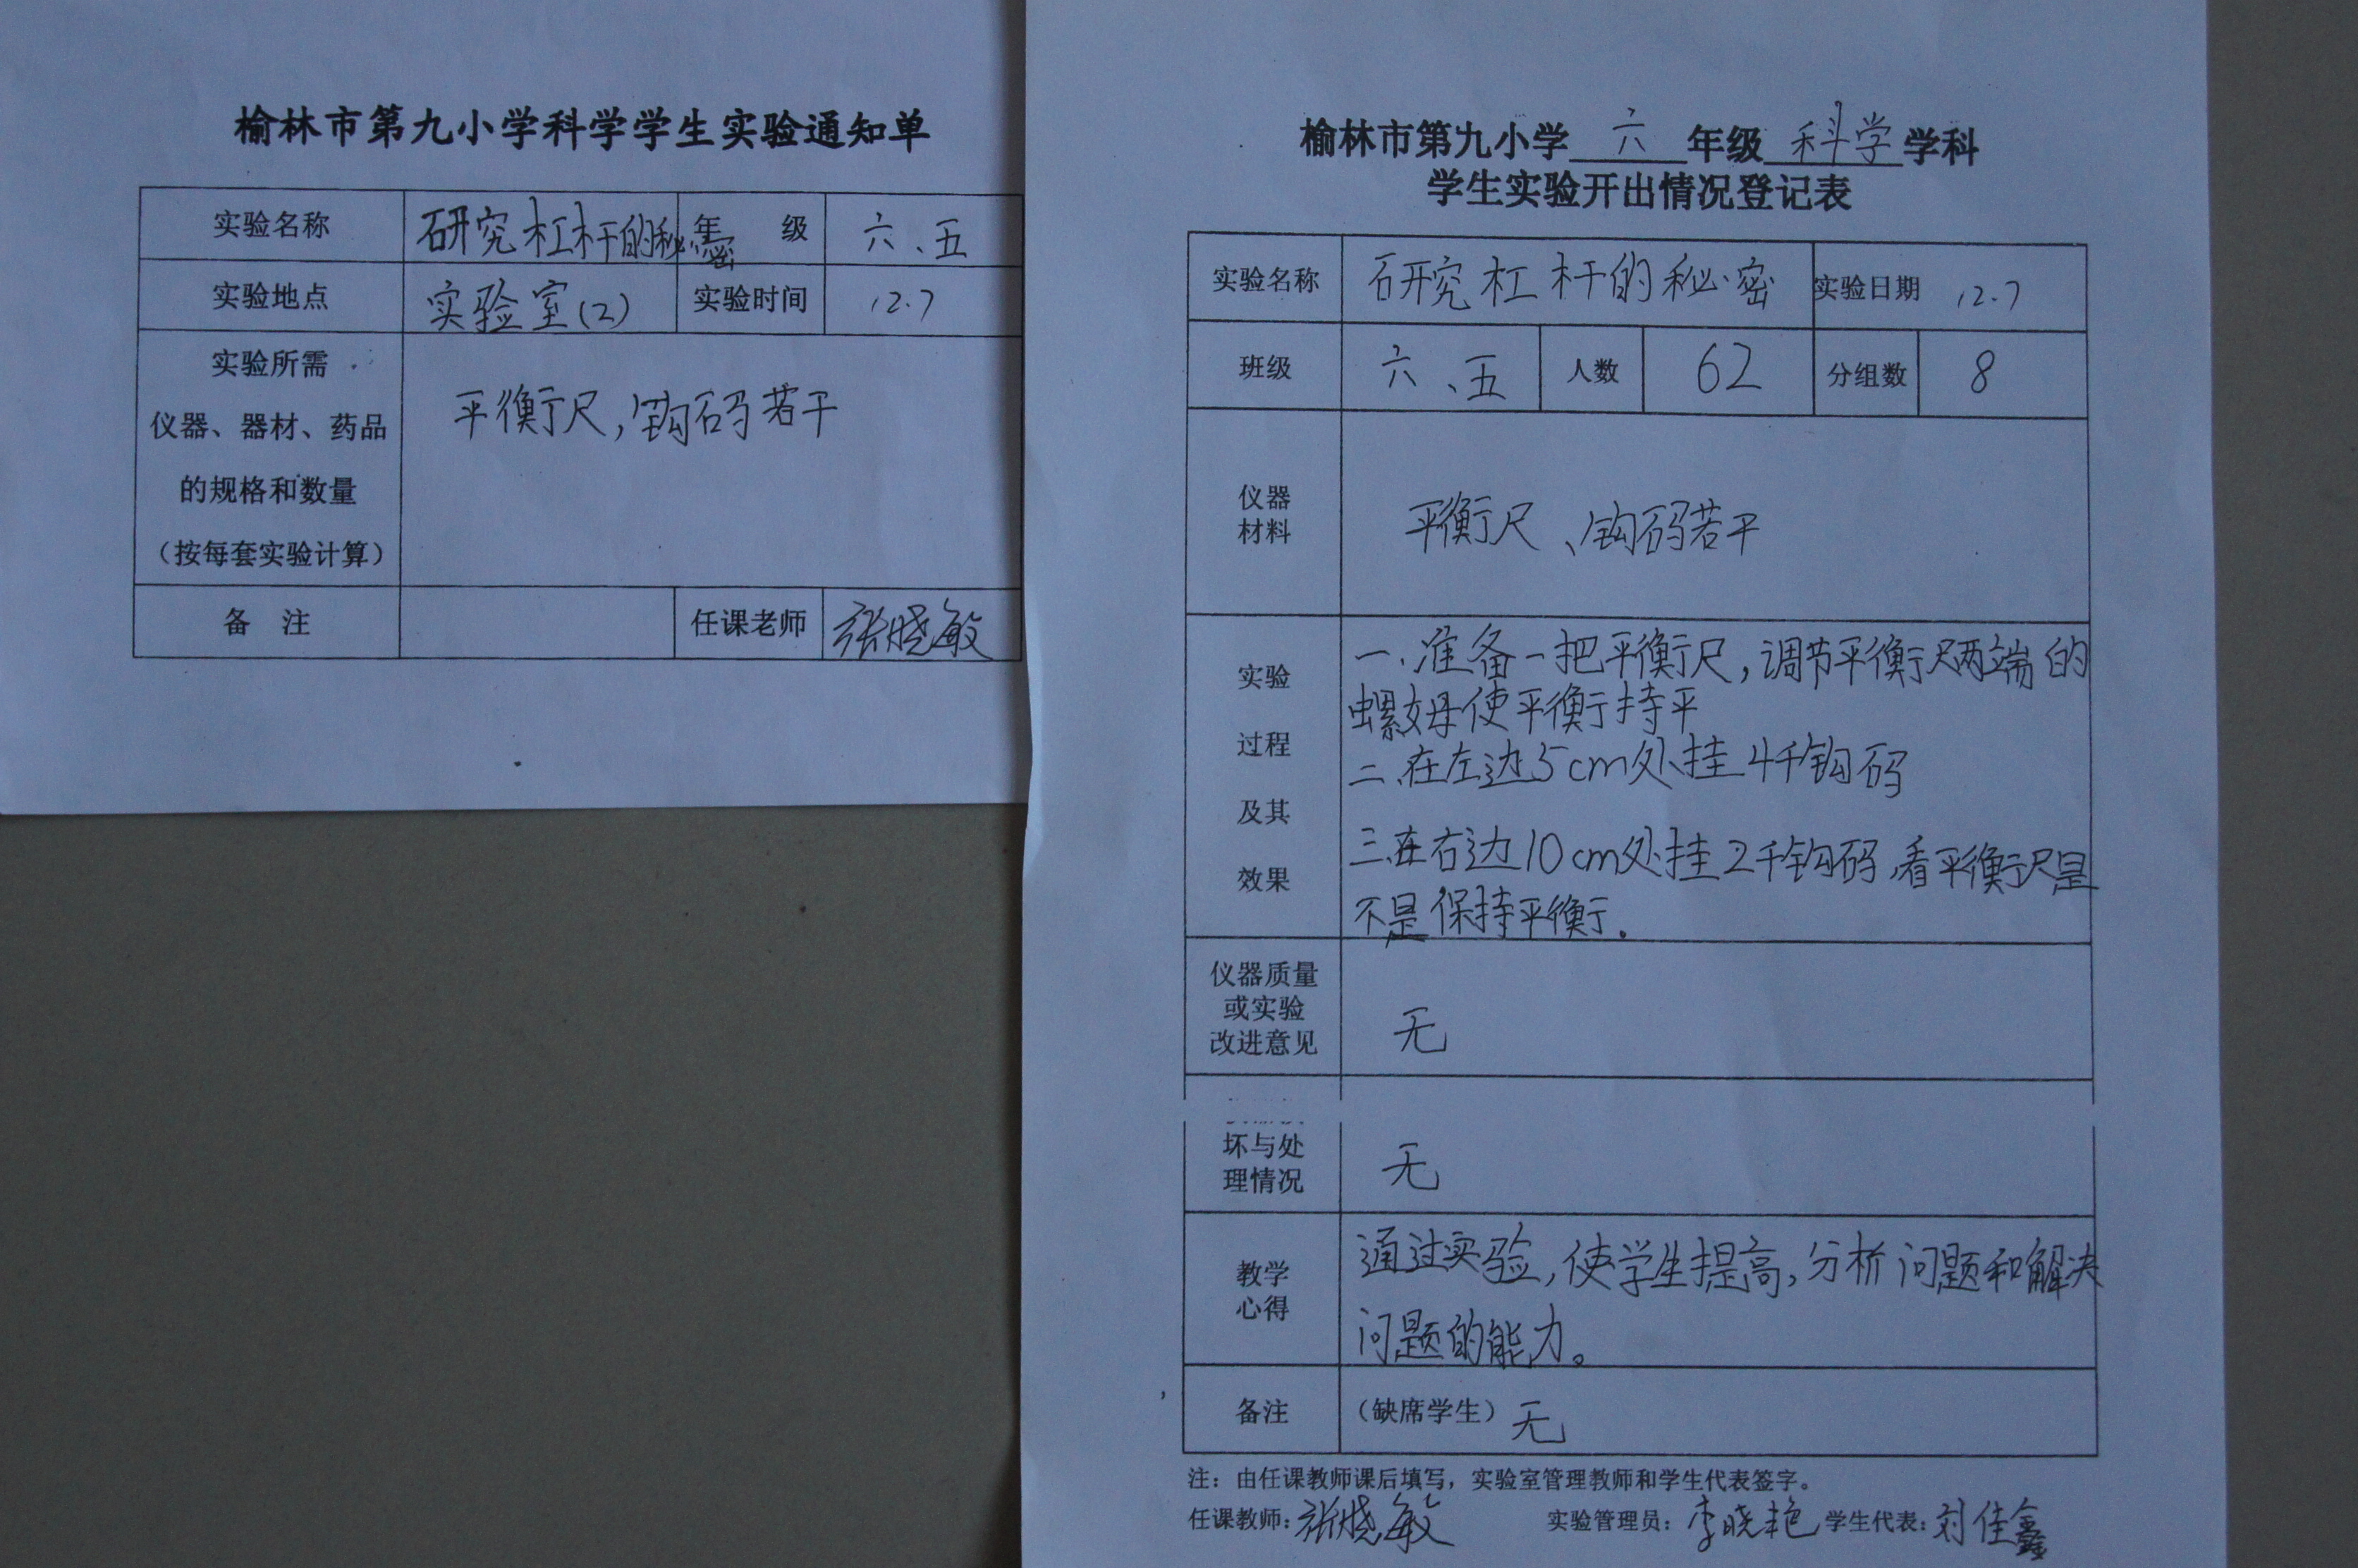 榆林市第九小学科学学生实验通知单
实验名称 研究杠杆的秘密 年 级 六、五
实验地点 实验室(2) 实验时间 12.7
实验所需
仪器、器材、药品
的规格和数量
（按每套实验计算）
平衡尺，钩码若干
备 注 任课老师 张晓敏
榆林市第九小学 六 年级 科学 学科
学生实验开出情况登记表
实验名称 研究杠杆的秘密 实验日期 12.7
班级 六、五 人数 62 分组数 8
仪器
材料
平衡尺、钩码若干
实验
过程
及其
效果
一.准备一把平衡尺，调节平衡尺两端的
螺母使平衡持平
二.在左边5cm处挂4千钩码
三.在右边10cm处挂2千钩码，看平衡尺是
不是保持平衡.
仪器质量
或实验
改进意见
无
坏与处
理情况
无
教学
心得
通过实验，使学生提高，分析问题和解决
问题的能力。
备注 （缺席学生）无
注：由任课教师课后填写，实验室管理教师和学生代表签字。
任课教师：张晓敏 实验管理员：李晓艳 学生代表：刘佳鑫